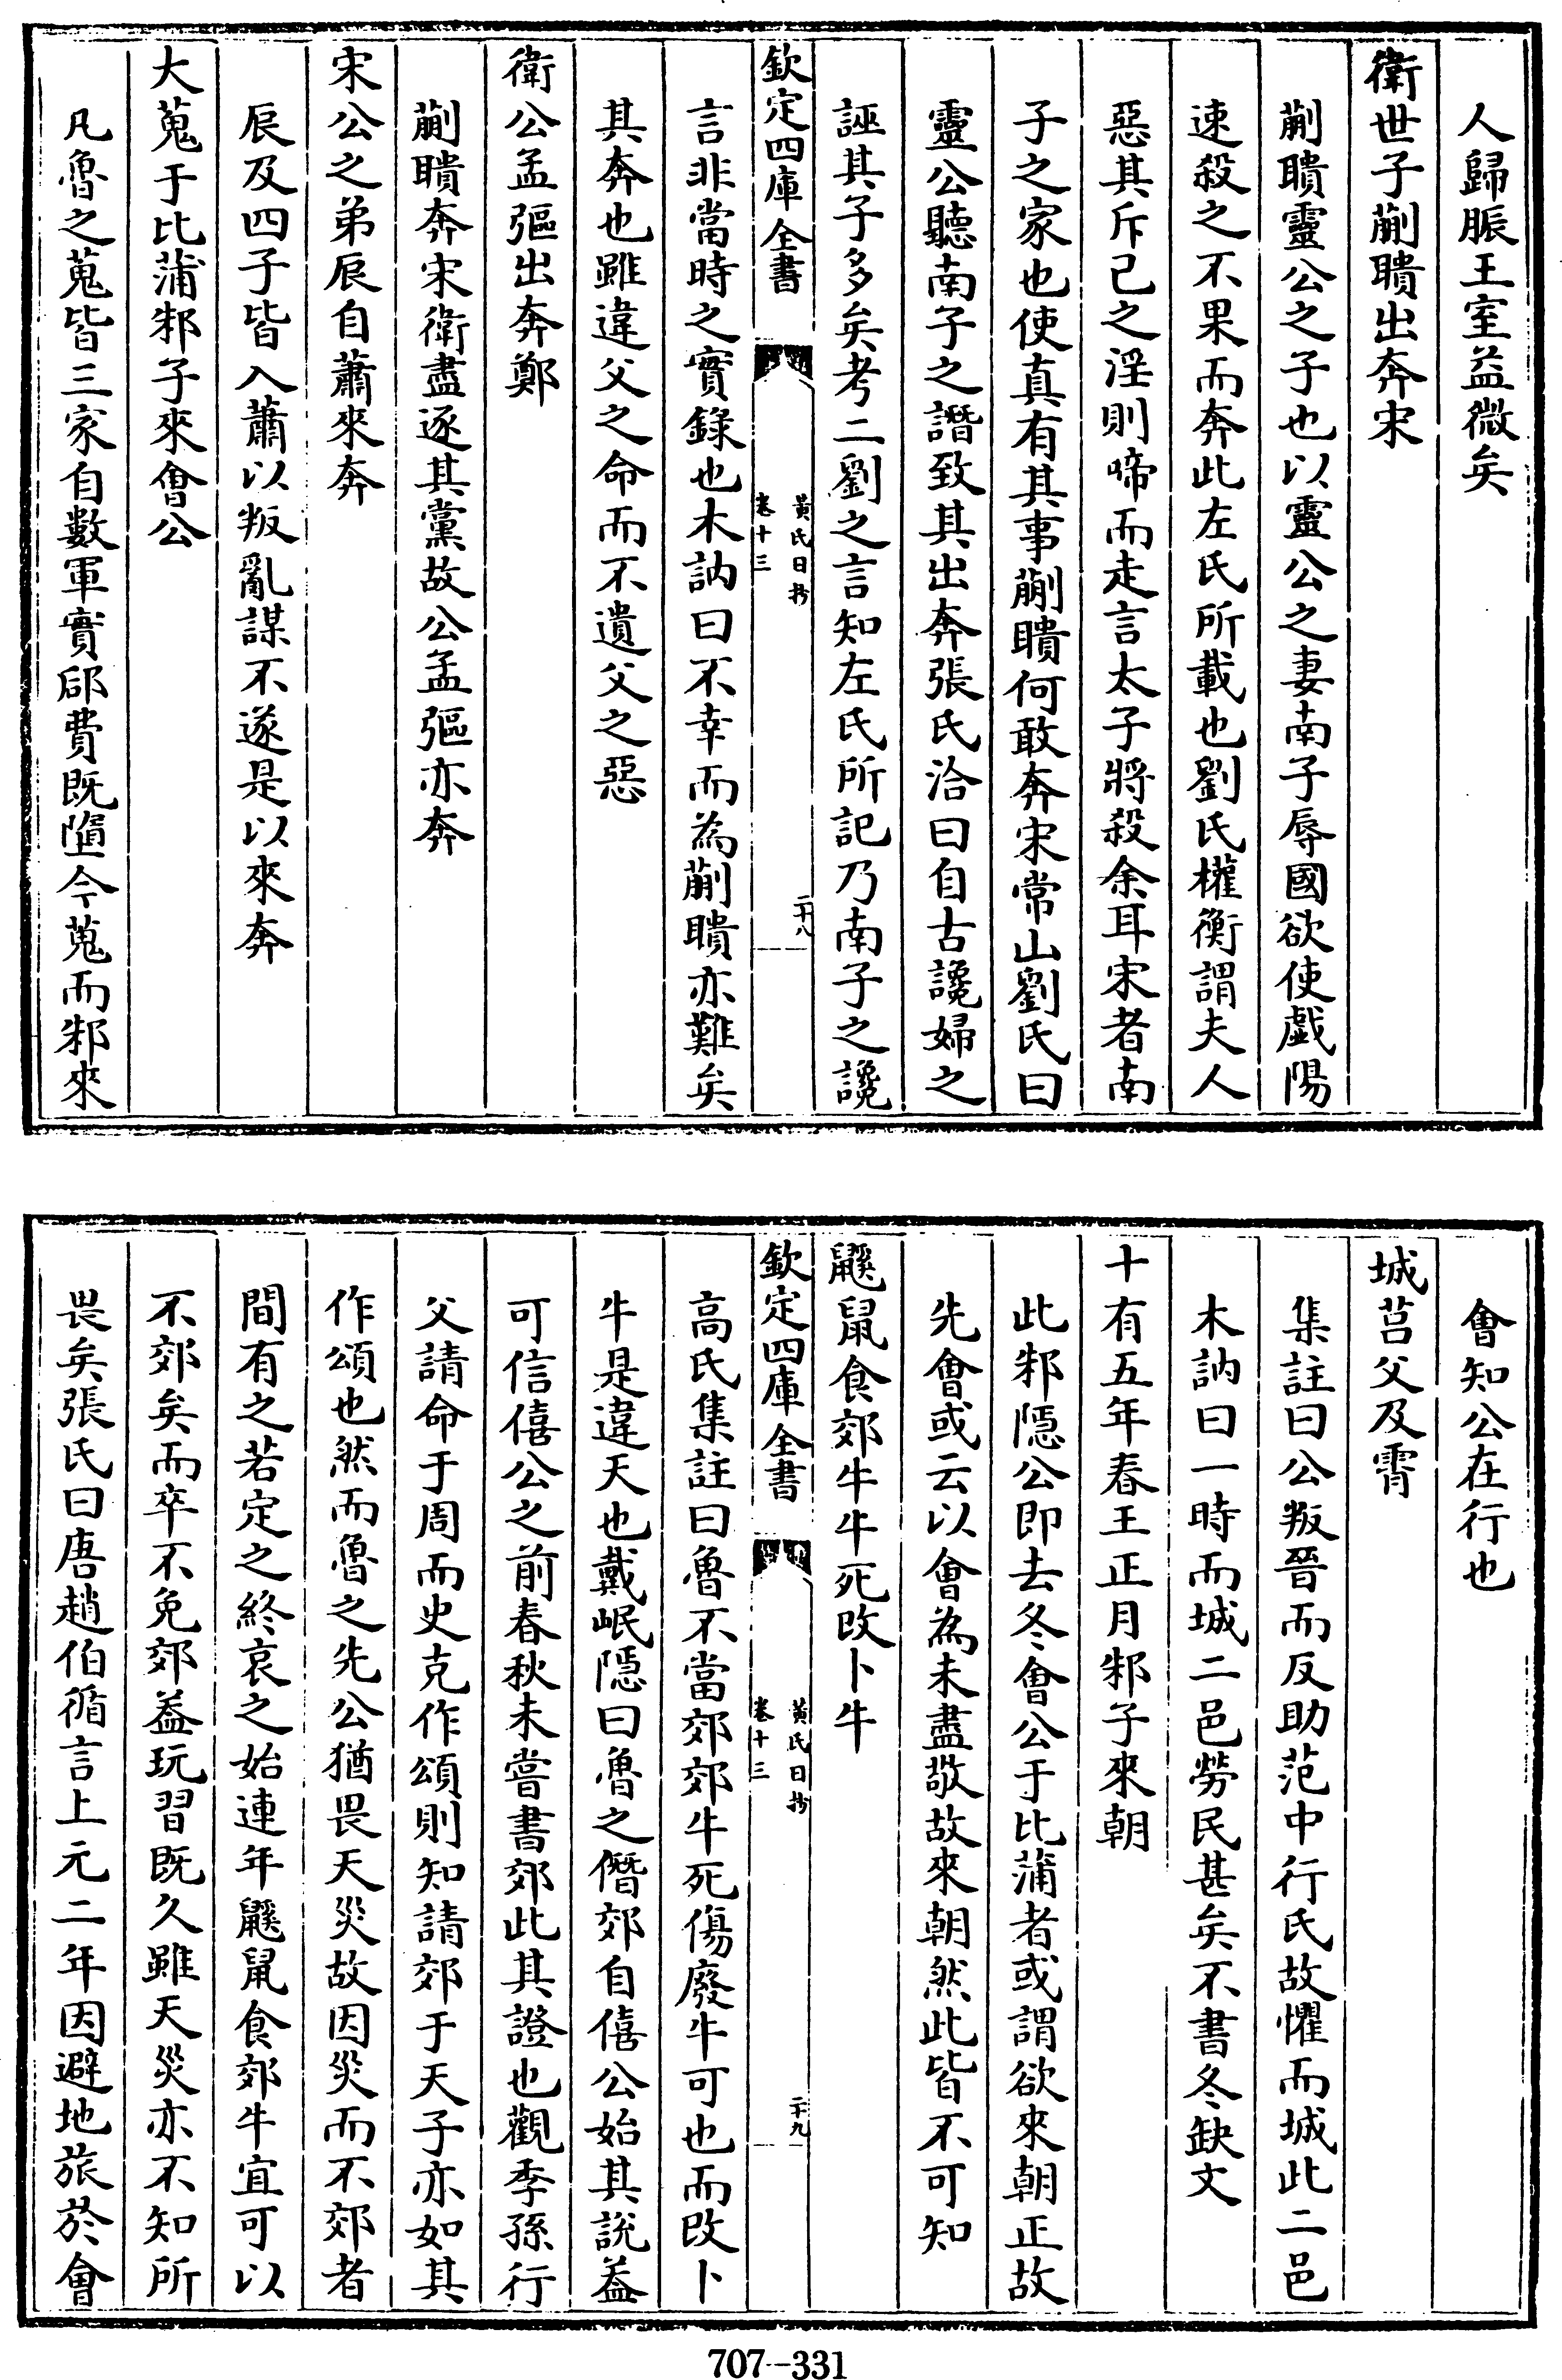 人歸脤王室益微矣
衛世子蒯聵出奔宋
蒯聵靈公之子也以靈公之妻南子辱國欲使戲陽
速殺之不果而奔此左氏所載也劉氏權衡謂夫人
惡其斥己之淫則啼而走言太子將殺余耳宋者南
子之家也使真有其事蒯聵何敢奔宋常山劉氏曰
靈公聽南子之譖致其出奔張氏洽曰自古讒婦之
誣其子多矣考二劉之言知左氏所記乃南子之讒
欽定四庫全書
黃氏日抄
卷十三
二十八
言非當時之實錄也木訥曰不幸而為蒯聵亦難矣
其奔也雖違父之命而不遺父之惡
衛公孟彄出奔鄭
蒯聵奔宋衛盡逐其黨故公孟彄亦奔
宋公之弟辰自蕭來奔
辰及四子皆入蕭以叛亂謀不遂是以來奔
大蒐于比蒲邾子來會公
凡魯之蒐皆三家自數軍實郈費既隳今蒐而邾來
會知公在行也
城莒父及霄
集註曰公叛晉而反助范中行氏故懼而城此二邑
木訥曰一時而城二邑勞民甚矣不書冬缺文
十有五年春王正月邾子來朝
此邾隱公即去冬會公于比蒲者或謂欲來朝正故
先會或云以會為未盡敬故來朝然此皆不可知
鼷鼠食郊牛牛死改卜牛
欽定四庫全書
黃氏日抄
卷十三
二十九
高氏集註曰魯不當郊郊牛死傷廢牛可也而改卜
牛是違天也戴岷隱曰魯之僭郊自僖公始其說蓋
可信僖公之前春秋未嘗書郊此其證也觀季孫行
父請命于周而史克作頌則知請郊于天子亦如其
作頌也然而魯之先公猶畏天災故因災而不郊者
間有之若定之終哀之始連年鼷鼠食郊牛宜可以
不郊矣而卒不免郊蓋玩習既久雖天災亦不知所
畏矣張氏曰唐趙伯循言上元二年因避地旅於會
707-331